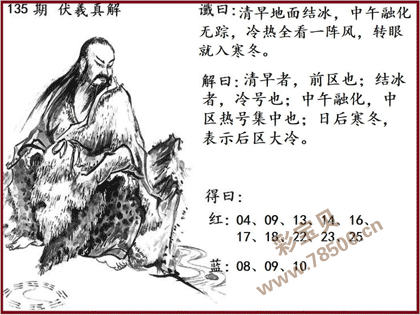 135 期 伏羲真解
谶曰：清早地面结冰，中午融化
无踪，冷热全看一阵风，转眼
就入寒冬。
解曰：清早者，前区也；结冰
者，冷号也；中午融化，中
区热号集中也；日后寒冬，
表示后区大冷。
得曰：
红：04、09、13、14、16、
17、18、22、23、25
蓝：08、09、10
彩宝贝
www.78500.cn